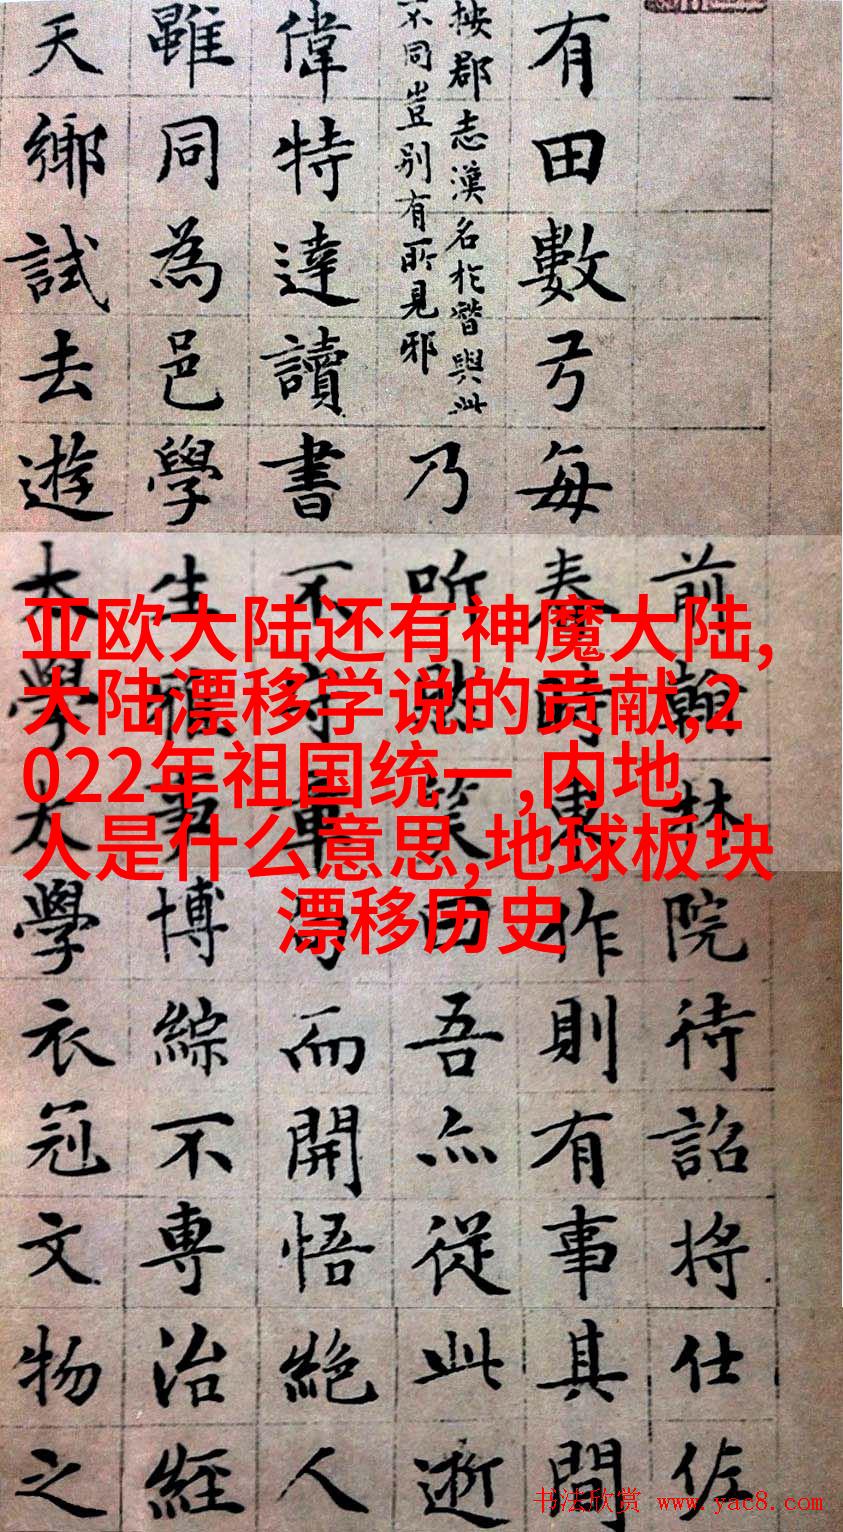 前翰林院待詔將仕佐
有田數弓每春時東作則有事其間
按郡志漢名於與此
不同豈別有所見邪
乃听然笑曰吾亦從此逝
偉特達讀書不守章句而開悟絕人
雖同為邑學生務博綜不專治經
天鄉試去遊太學太學衣冠文物之
亚欧大陆还有神魔大陆,
大陆漂移学说的贡献,2
022年祖国统一,内地
人是什么意思,地球板块
漂移历史
书法欣赏 www.yac8.com